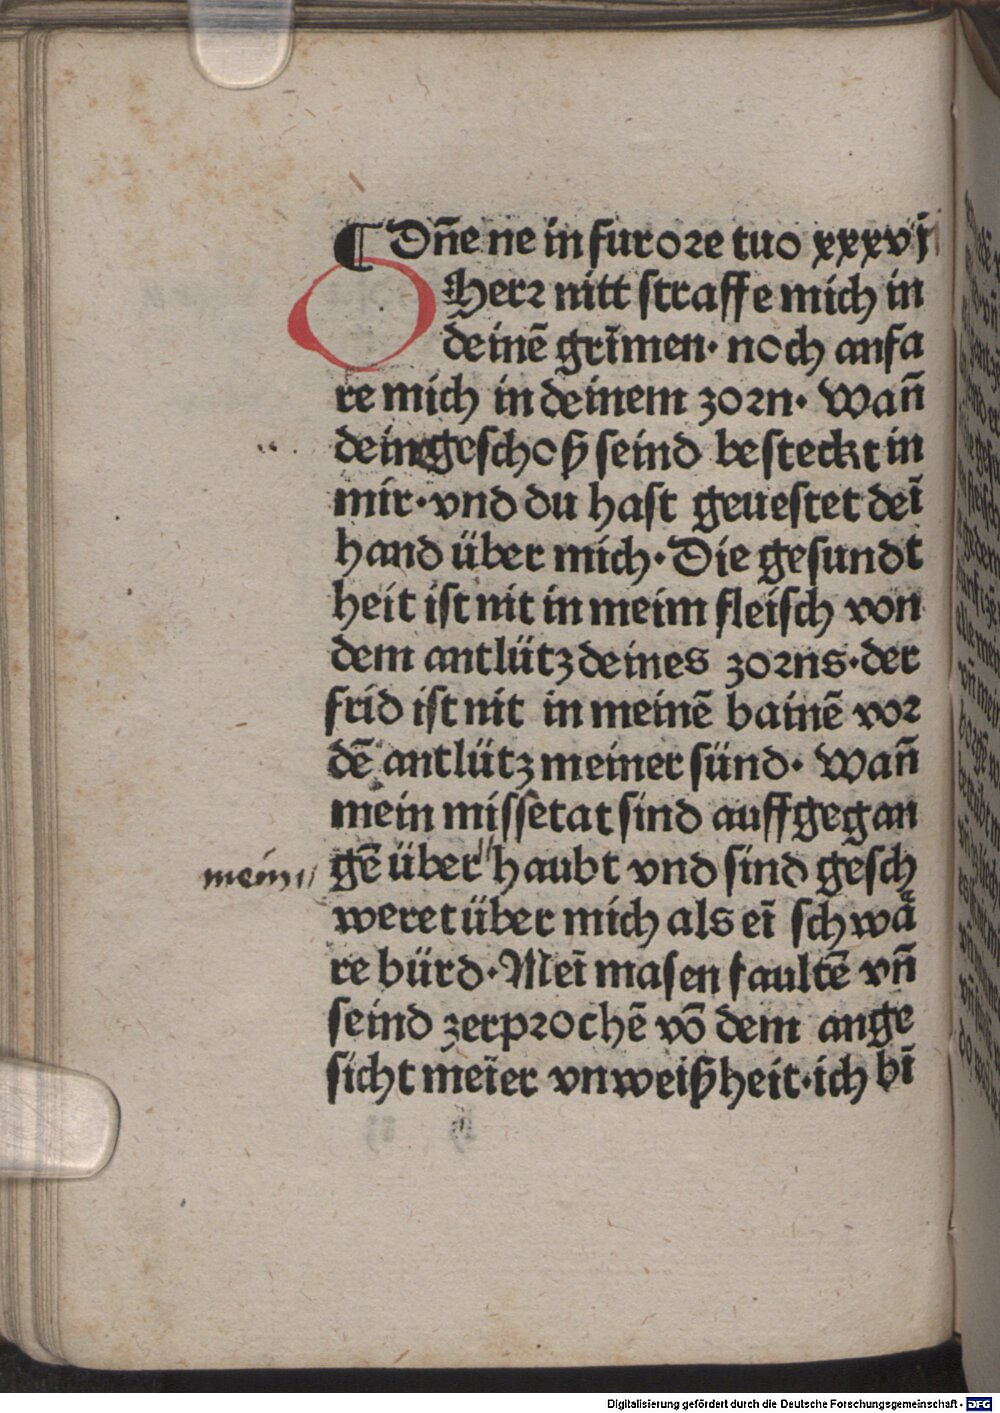 ¶ Dñe ne in furore tuo xxxvij
O Herr nitt straffe mich in
deinē grīmen· noch anfa
re mich in deinem zorn· Wañ
dein geschoß seind besteckt in
mir· vnd du hast geuestet deī
hand über mich· Die gesundt
heit ist nit in meim fleisch von
dem antlütz deines zorns· der
frid ist nit in meinē bainē vor
dē antlütz meiner sünd· Wañ
mein missetat sind auffgegan
gē über haubt vnd sind gesch
mein
weret über mich als eī schwā
re bürd· Meī masen faultē vñ
seind zerprochē vō dem ange
sicht meīer vnweißheit· ich bī
Digitalisierung gefördert durch die Deutsche Forschungsgemeinschaft - DFG